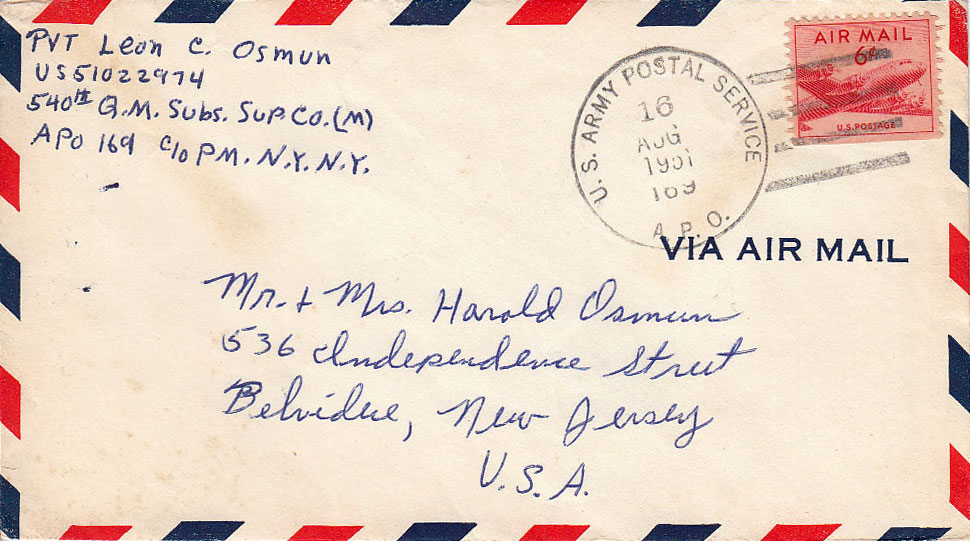 PVT Leon C. Osmun
US51022974
540th Q.M. Subs. Sup. Co. (M)
APO 169 c/o P.M. N.Y. N.Y.
U.S. ARMY POSTAL SERVICE
16
AUG
1951
169
A.P.O.
AIR MAIL
6¢
U.S. POSTAGE
VIA AIR MAIL
Mr. + Mrs. Harold Osmun
536 Independence Street
Belvidere, New Jersey
U.S.A.